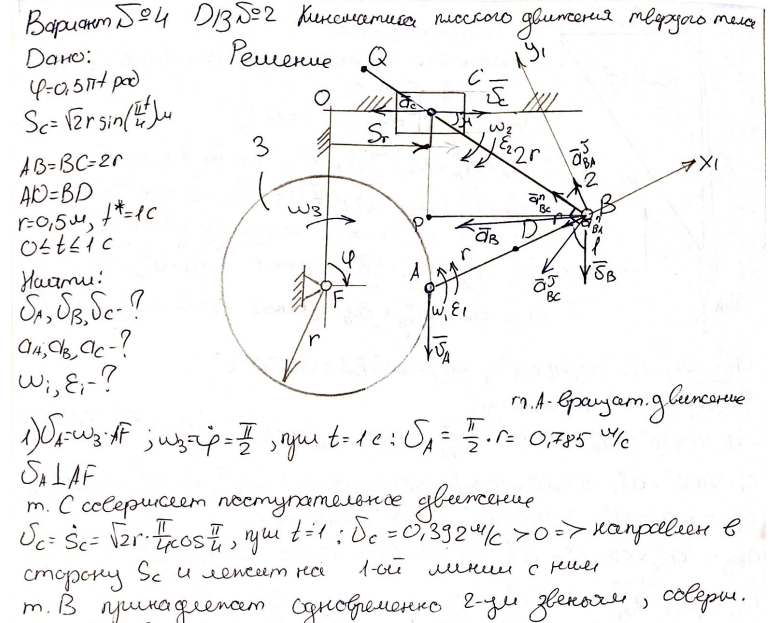 Вариант №4 ДЗ №2 Кинематика плоского движения твердого тела
Дано:
Решение
φ=0,5πt рад
Sc=√2 r sin(πt/4) м
AB=BC=2r
AD=BD
r=0,5м, t*=1c
0≤t≤1 c
Найти:
υA, υB, υC-?
aA, aB, aC-?
ωi, εi-?
Q
y1
C
O
āc
ῡc
Sr
ω2
ε2
2r
āτBA
2
x1
3
ω3
P
āB
ānBC
B
ānBA
D
r
1
ῡB
āτBC
φ
A
F
ω1
ε1
r
ῡA
т. A - вращат. движение
1) υA=ω3·AF ; ω3=φ̇=π/2 , при t=1 c : υA = π/2 · r = 0,785 м/c
υA⊥AF
т. C совершает поступательное движение
υc = Ṡc = √2 r · π/4 cos π/4 , при t=1 : υc = 0,392 м/c >0 => направлен в
сторону Sc и лежит на 1-ой линии с ним
т. B принадлежит одновременно 2-ум звеньям, соверш.